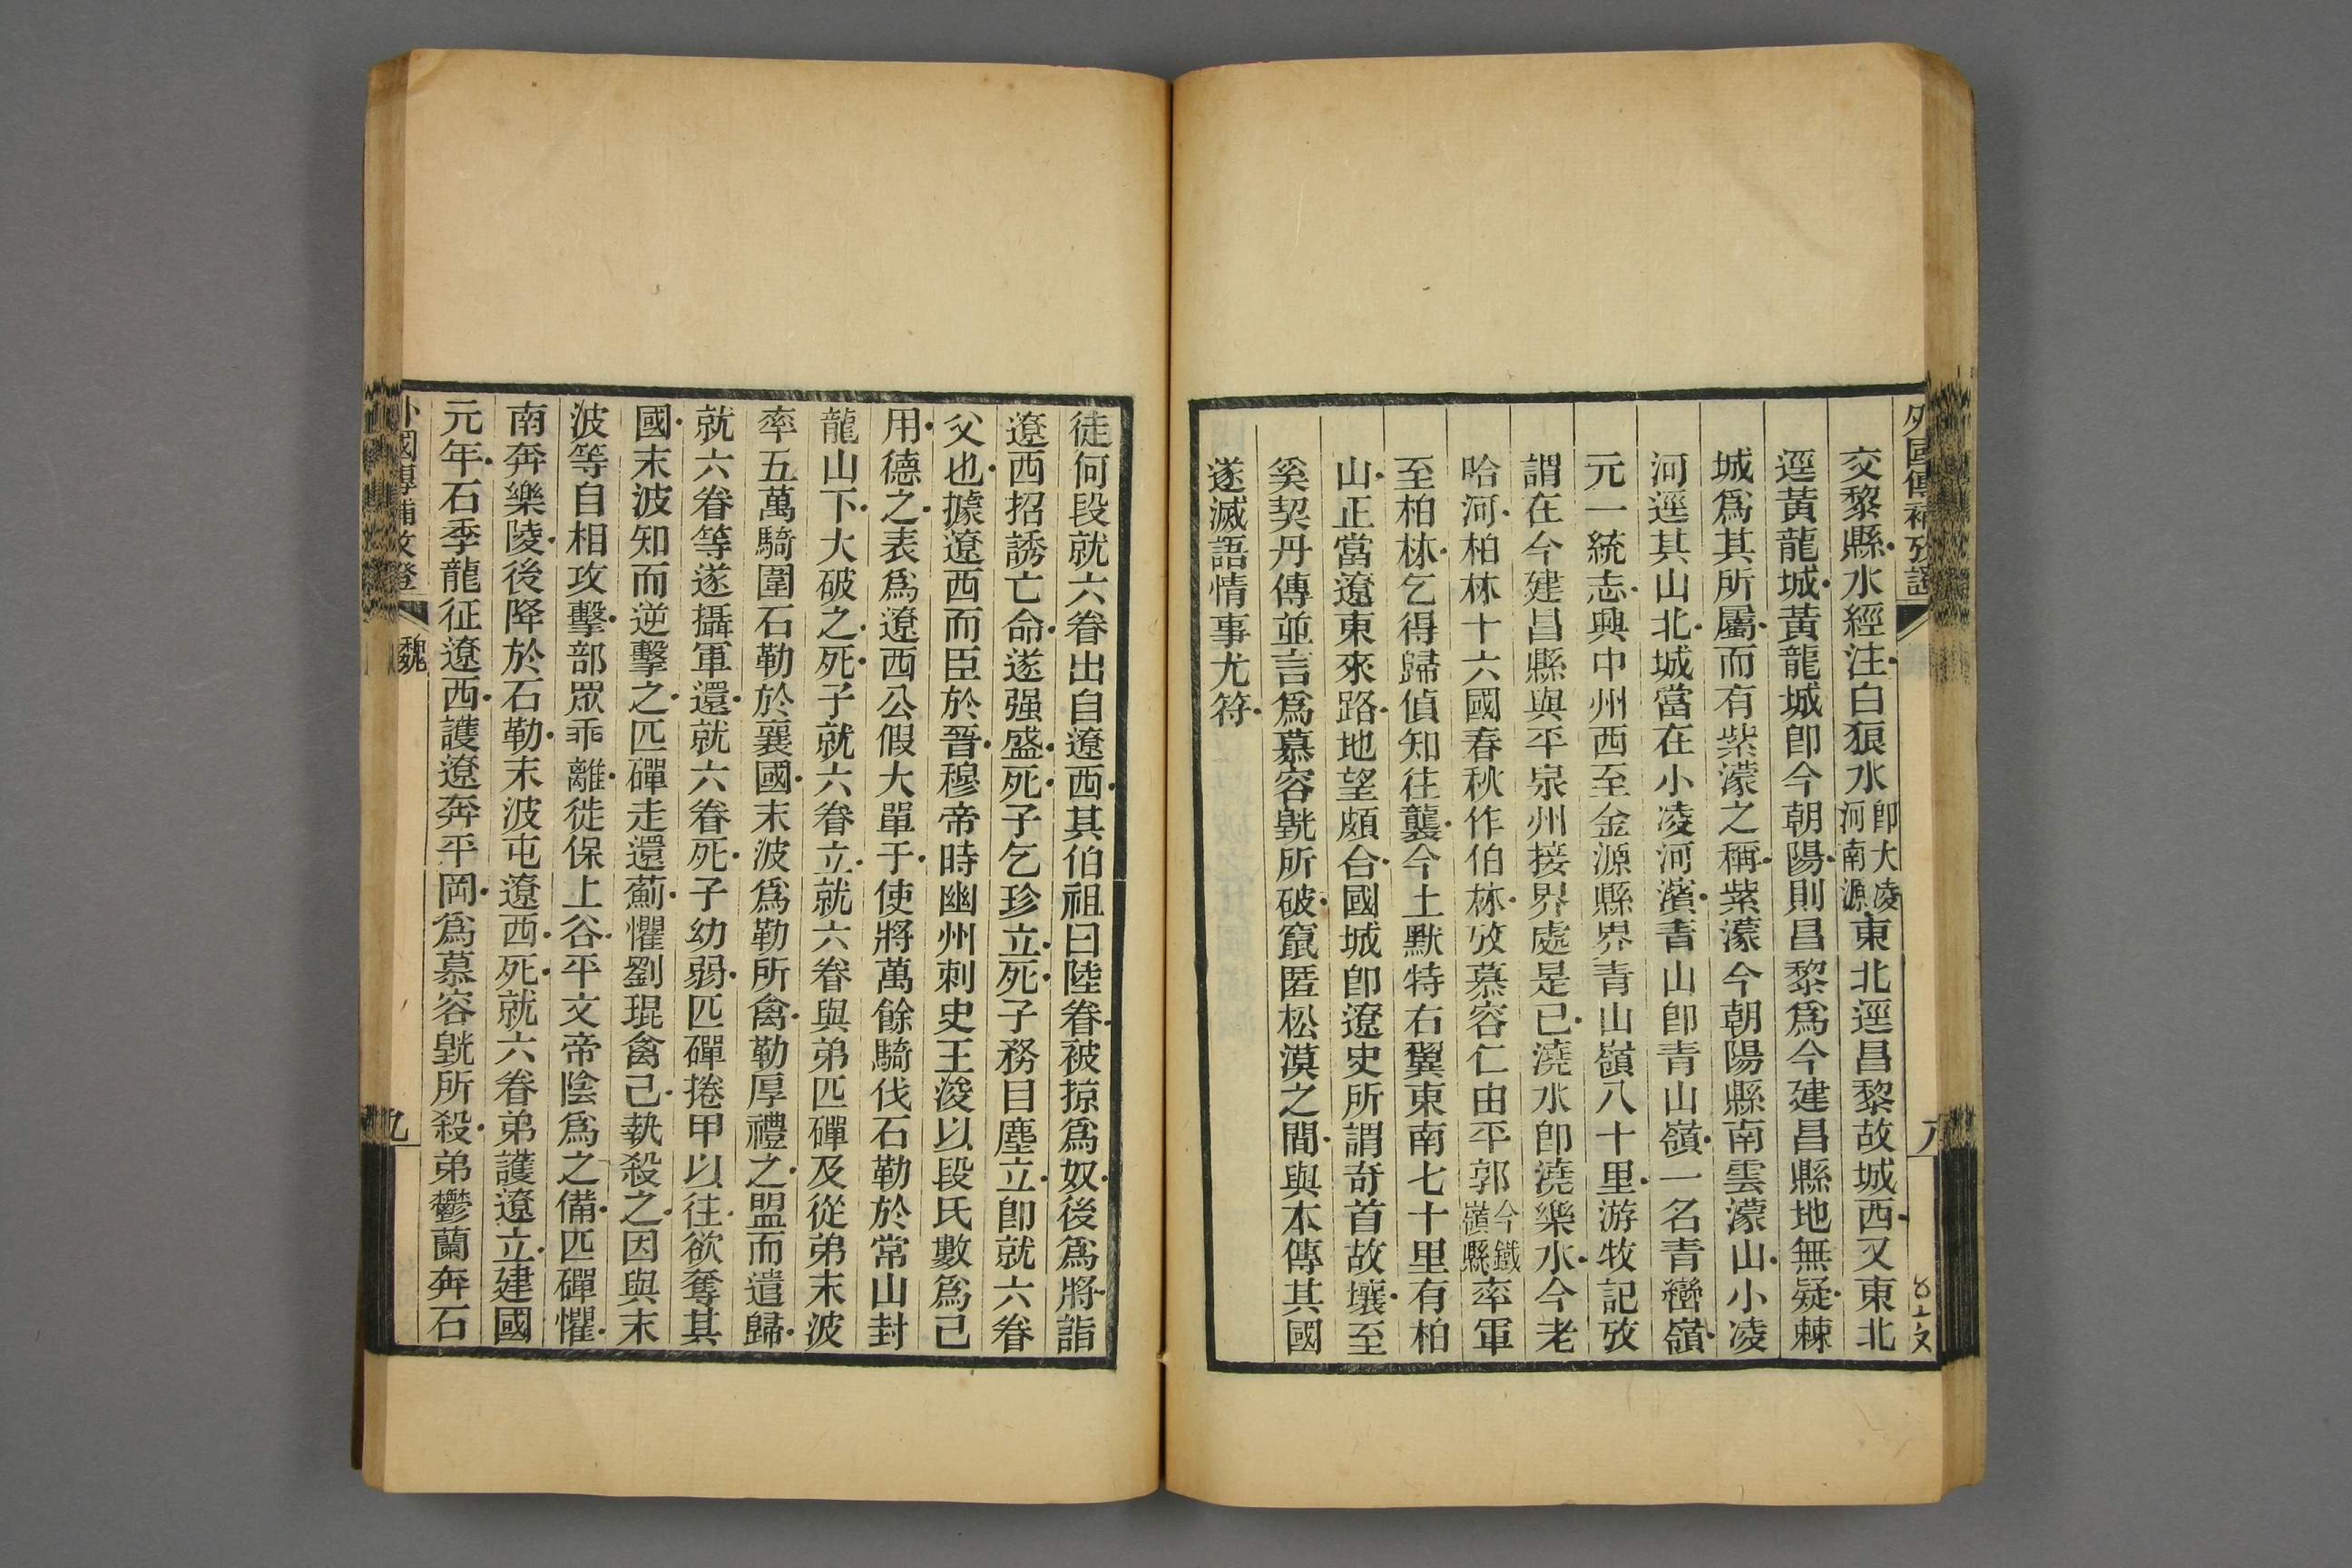 外國傳補攷證
八
交黎縣水經注白狼水即大凌河南源東北逕昌黎故城西又東北
逕黃龍城黃龍城卽今朝陽則昌黎爲今建昌縣地無疑棘
城爲其所屬而有紫濛之稱紫濛今朝陽縣南雲濛山小凌
河逕其山北城當在小凌河濱青山卽青山嶺一名青巒嶺
元一統志興中州西至金源縣界青山嶺八十里游牧記攷
謂在今建昌縣與平泉州接界處是已澆水卽澆樂水今老
哈河柏林十六國春秋作伯林攷慕容仁由平郭今鐵嶺縣率軍
至柏林乞得歸偵知往襲今土默特右翼東南七十里有柏
山正當遼東來路地望頗合國城卽遼史所謂奇首故壤至
奚契丹傳並言爲慕容皝所破竄匿松漠之間與本傳其國
遂滅語情事尤符
徒何段就六眷出自遼西其伯祖曰陸眷被掠爲奴後爲將詣
遼西招誘亡命遂强盛死子乞珍立死子務目塵立卽就六眷
父也據遼西而臣於晉穆帝時幽州刺史王浚以段氏數爲己
用德之表爲遼西公假大單于使將萬餘騎伐石勒於常山封
龍山下大破之死子就六眷立就六眷與弟匹磾及從弟末波
率五萬騎圍石勒於襄國末波爲勒所禽勒厚禮之盟而遣歸
就六眷等遂攝軍還就六眷死子幼弱匹磾捲甲以往欲奪其
國末波知而逆擊之匹磾走還薊懼劉琨禽己執殺之因與末
波等自相攻擊部眾乖離徙保上谷平文帝陰爲之備匹磾懼
南奔樂陵後降於石勒末波屯遼西死就六眷弟護遼立建國
元年石季龍征遼西護遼奔平岡爲慕容皝所殺弟鬱蘭奔石
外國傳補攷證
魏
九